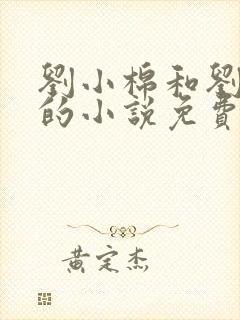 劉小棉和劉
的小說免費
黃定杰